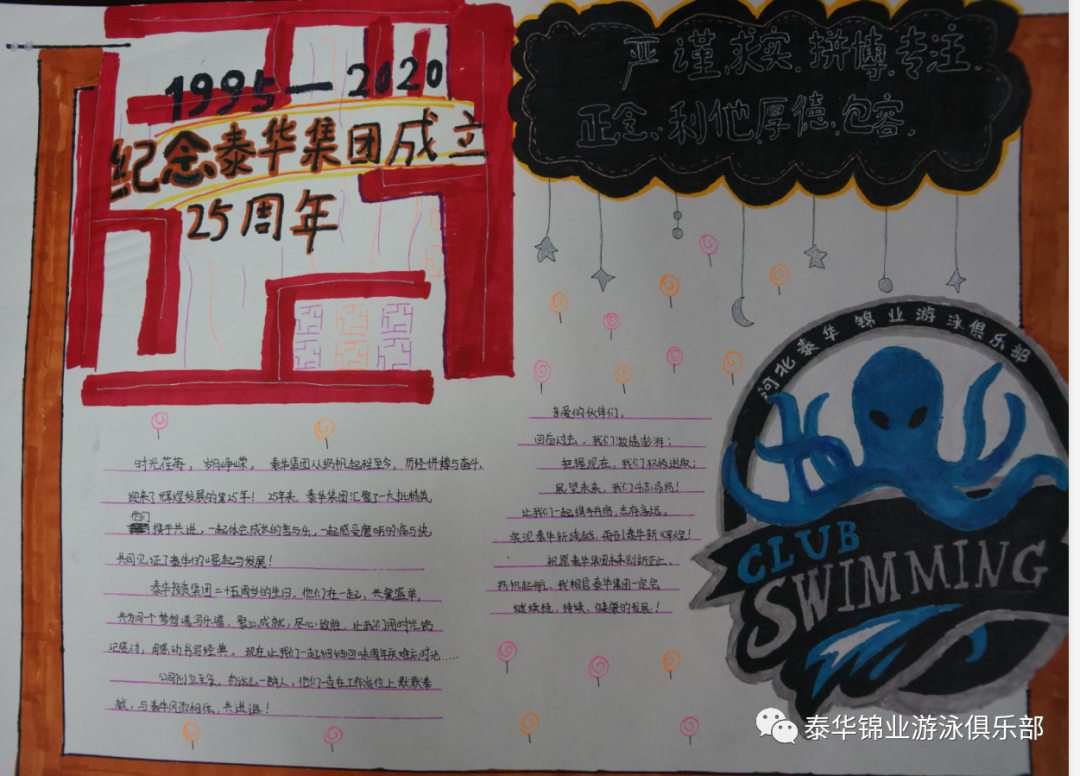 1995—2020
纪念泰华集团成立
25周年
严谨、求实、拼搏、专注、
正念、利他、厚德、包容、
时光荏苒，岁月峥嵘。泰华集团从扬帆起程至今，历经拼搏与奋斗，
迎来了辉煌发展的第25年！25年来，泰华集团汇聚了一大批精英，
他们
携手共进，一起体会成长的苦与乐，一起感受磨砺的痛与快，
共同见证了泰华的崛起与发展！
泰华 集团二十五周岁的生日，他们在一起，共聚盛举，
共为同一个梦想谱写乐谱，聚心成就，尽心致胜，让我们用时光铭
记感动，用感动书写经典。现在让我们一起细细回味周年庆难忘时光……
公司创立至今，有这么一群人，他们一直在工作岗位上默默奉
献，与泰华风雨相伴，共进退！
亲爱的伙伴们，
回首过去，我们激情澎湃；
把握现在，我们积极进取；
展望未来，我们斗志昂扬！
让我们一起携手并肩，志存高远，
实现泰华新跨越，再创泰华新辉煌！
祝愿泰华集团未来创新不止、
扬帆起航，我相信泰华集团一定会
继续稳、持续、健康的发展！
河北泰华锦业游泳俱乐部
CLUB
SWIMMING
泰华锦业游泳俱乐部